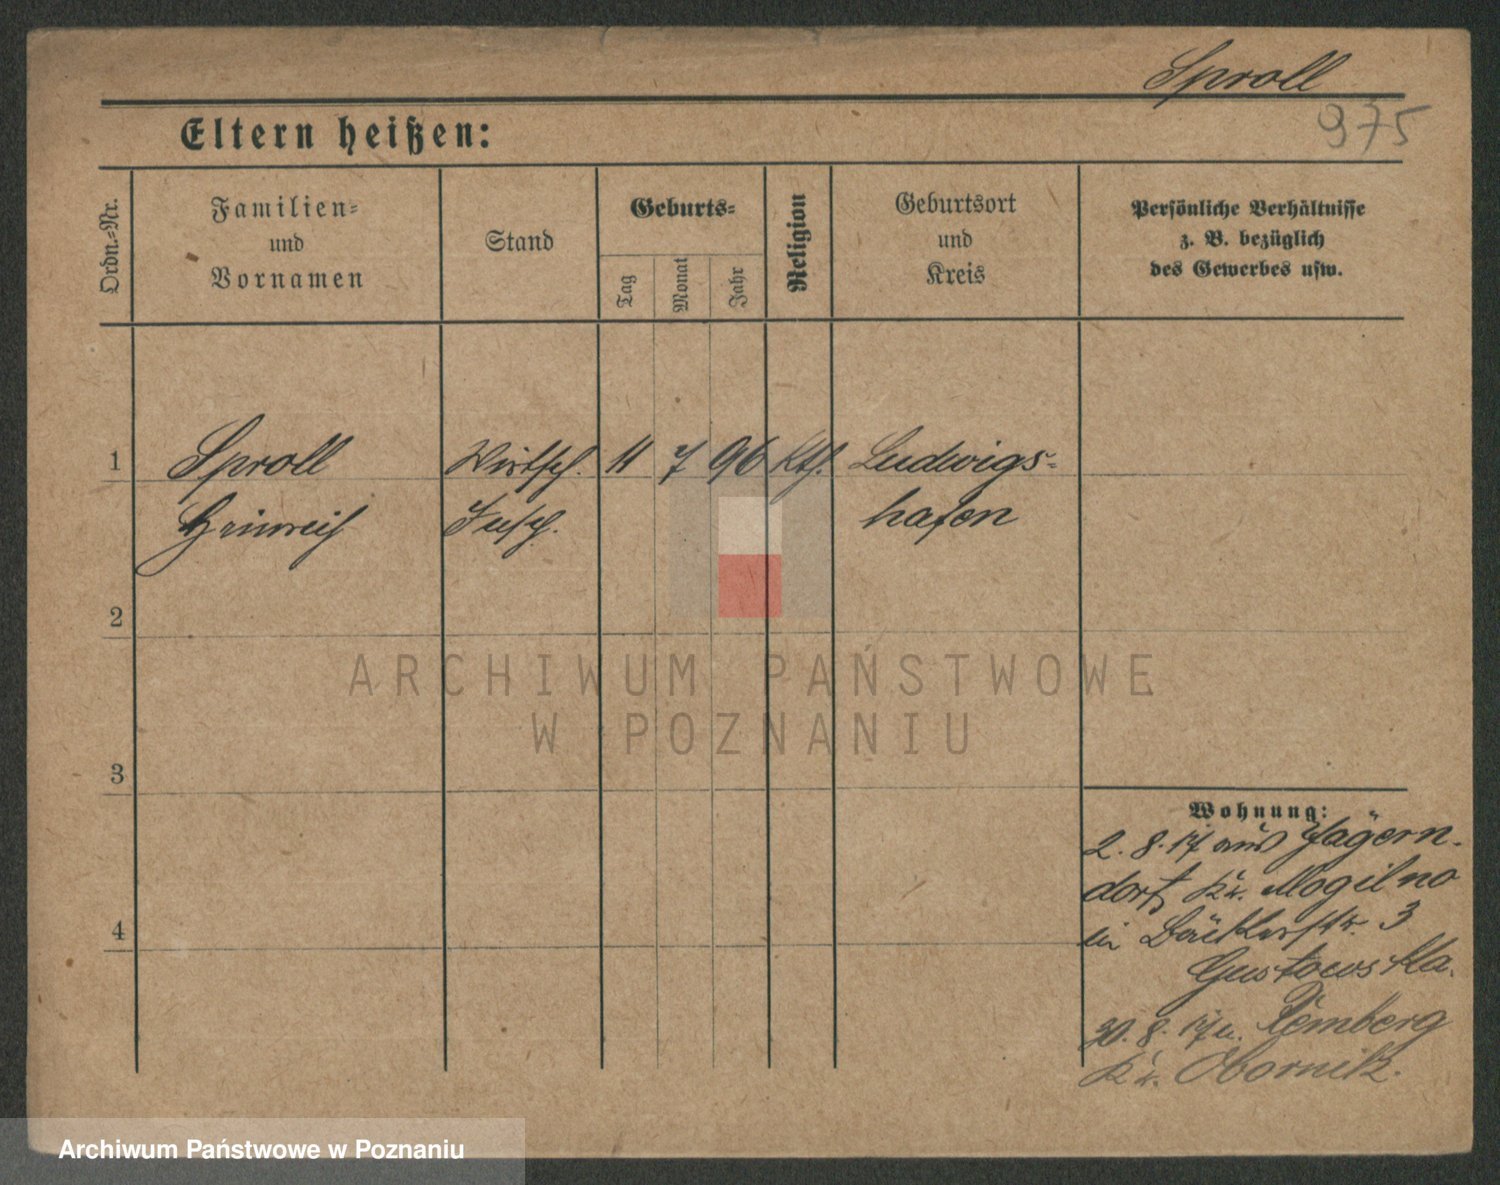 Sproll
975
Eltern heißen:
Ordn.-Nr.
Familien-
und
Vornamen
Stand
Geburts-
Tag
Monat
Jahr
Religion
Geburtsort
und
Kreis
Persönliche Verhältnisse
z. B. bezüglich
des Gewerbes usw.
1
Sproll Wirtsch. 11 7 96 kth. Ludwigs-
Heinrich Insp. hafen
2
3
4
ARCHIWUM PAŃSTWOWE
W POZNANIU
Wohnung:
2. 8. 17 aus Jägern-
dorf Kr. Mogilno
in Bäckerstr. 3
Gustowska.
30. 8. 17 n. Lemberg
Kr. Obornik.
Archiwum Państwowe w Poznaniu